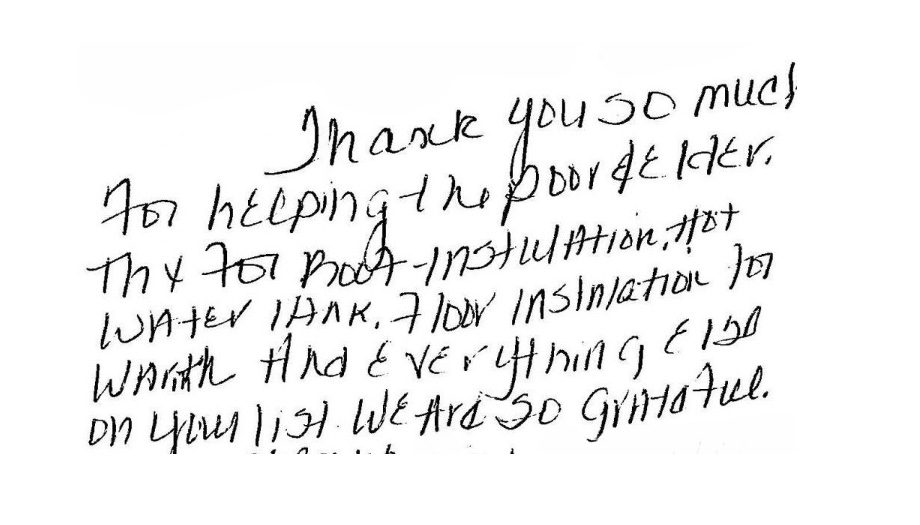 Thank you so much
For helping the poor & Elder.
Thx For Roof-Instulation, Hot
WAter TANK. Floor Insinlation for
Warmth And EvErything Else
on your list. WE Are so Gratatful.